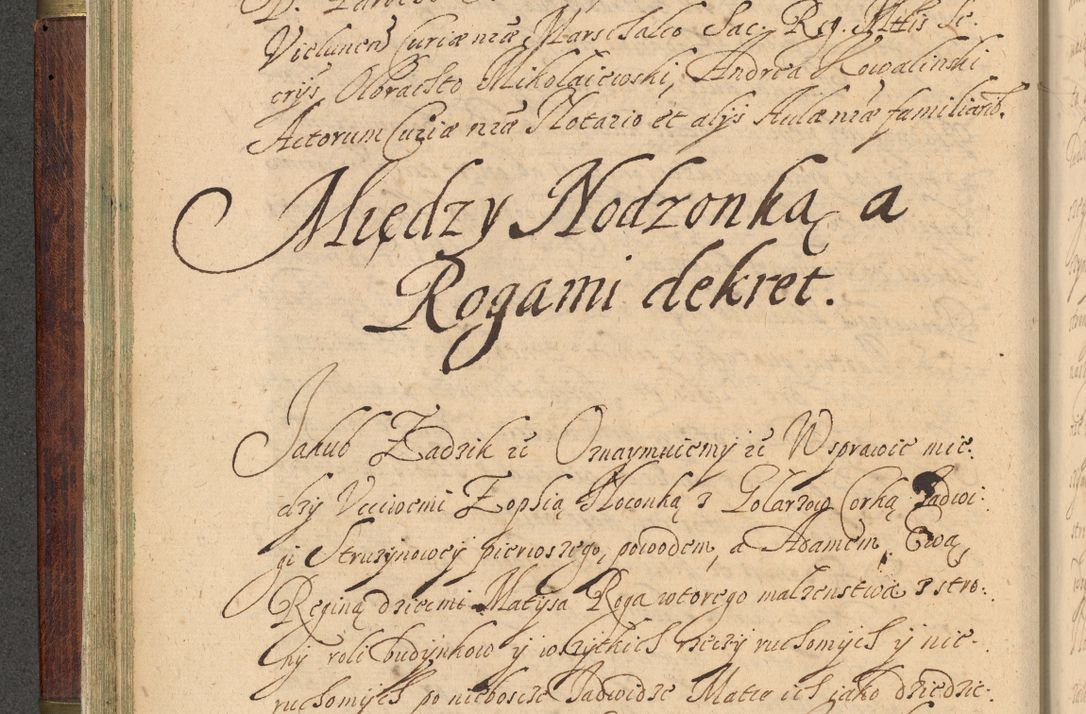 Vielunen Curiæ nræ Marschalco Sac. Reg. Mttis Se-
crys Alberto Mikolaiewski, Andrea Kowalinski
Actorum Curiæ nræ Notario et alys Aulæ nræ familiarib.
Między Nodzonką a
Rogami dekret.
Jakub Zadzik etc Oznaymuiemy iż W sprawie mie-
dzy Vcciwemi Zophią Noconką z Golarzow Corką Jadwi-
gi Struzynowey pierwszego, powodem, a Adamem, Ewą,
Reginą dziećmi Matysa Roga wtorego małzenstwa z stro-
ny roli budynkow y wszytkich rzeczy ruchomych y nie-
ruchomych po nieboscze Jadwidze Matce ich jako dziedzic-